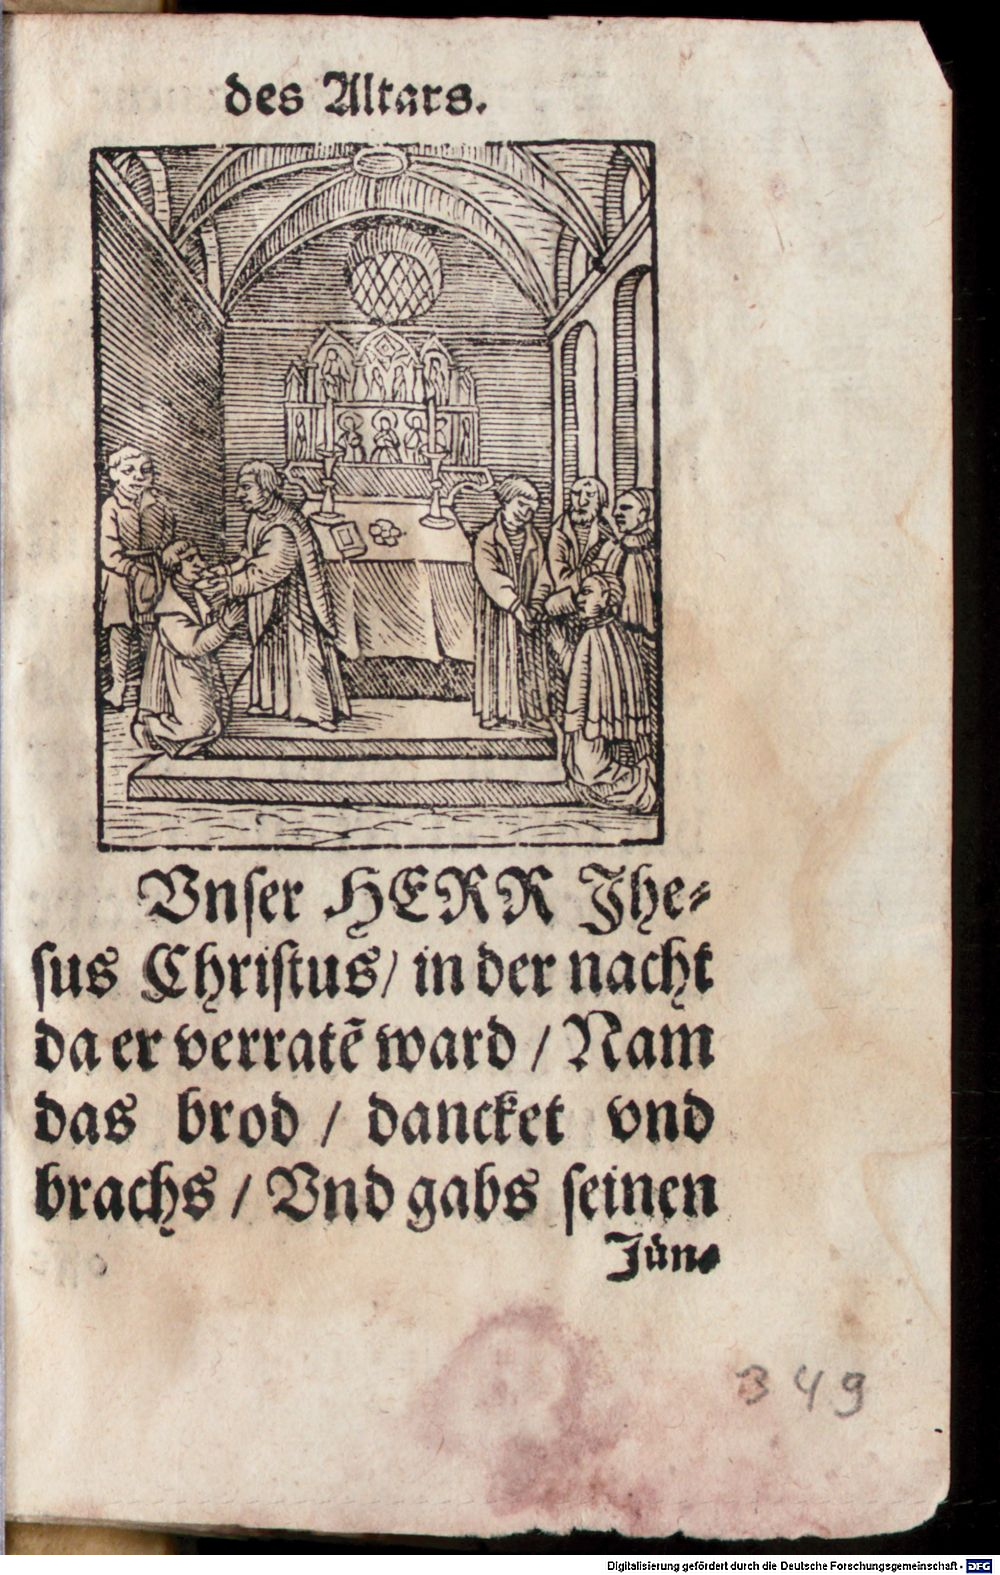 des Altars.
Vnser HERR Jhe⸗
sus Christus/ in der nacht
da er verratē ward / Nam
das brod / dancket vnd
brachs / Vnd gabs seinen
Jün⸗
349
Digitalisierung gefördert durch die Deutsche Forschungsgemeinschaft - DFG